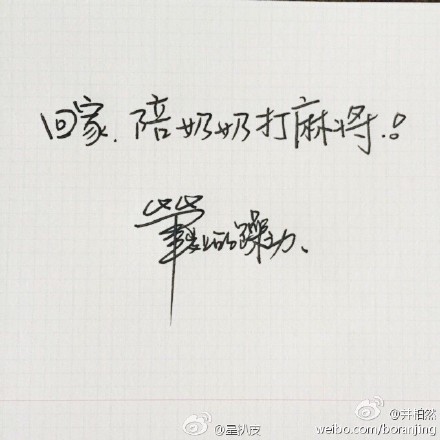 回家.陪奶奶打麻将.!
的躁动、
@星扒皮
@井柏然
weibo.com/boranjing